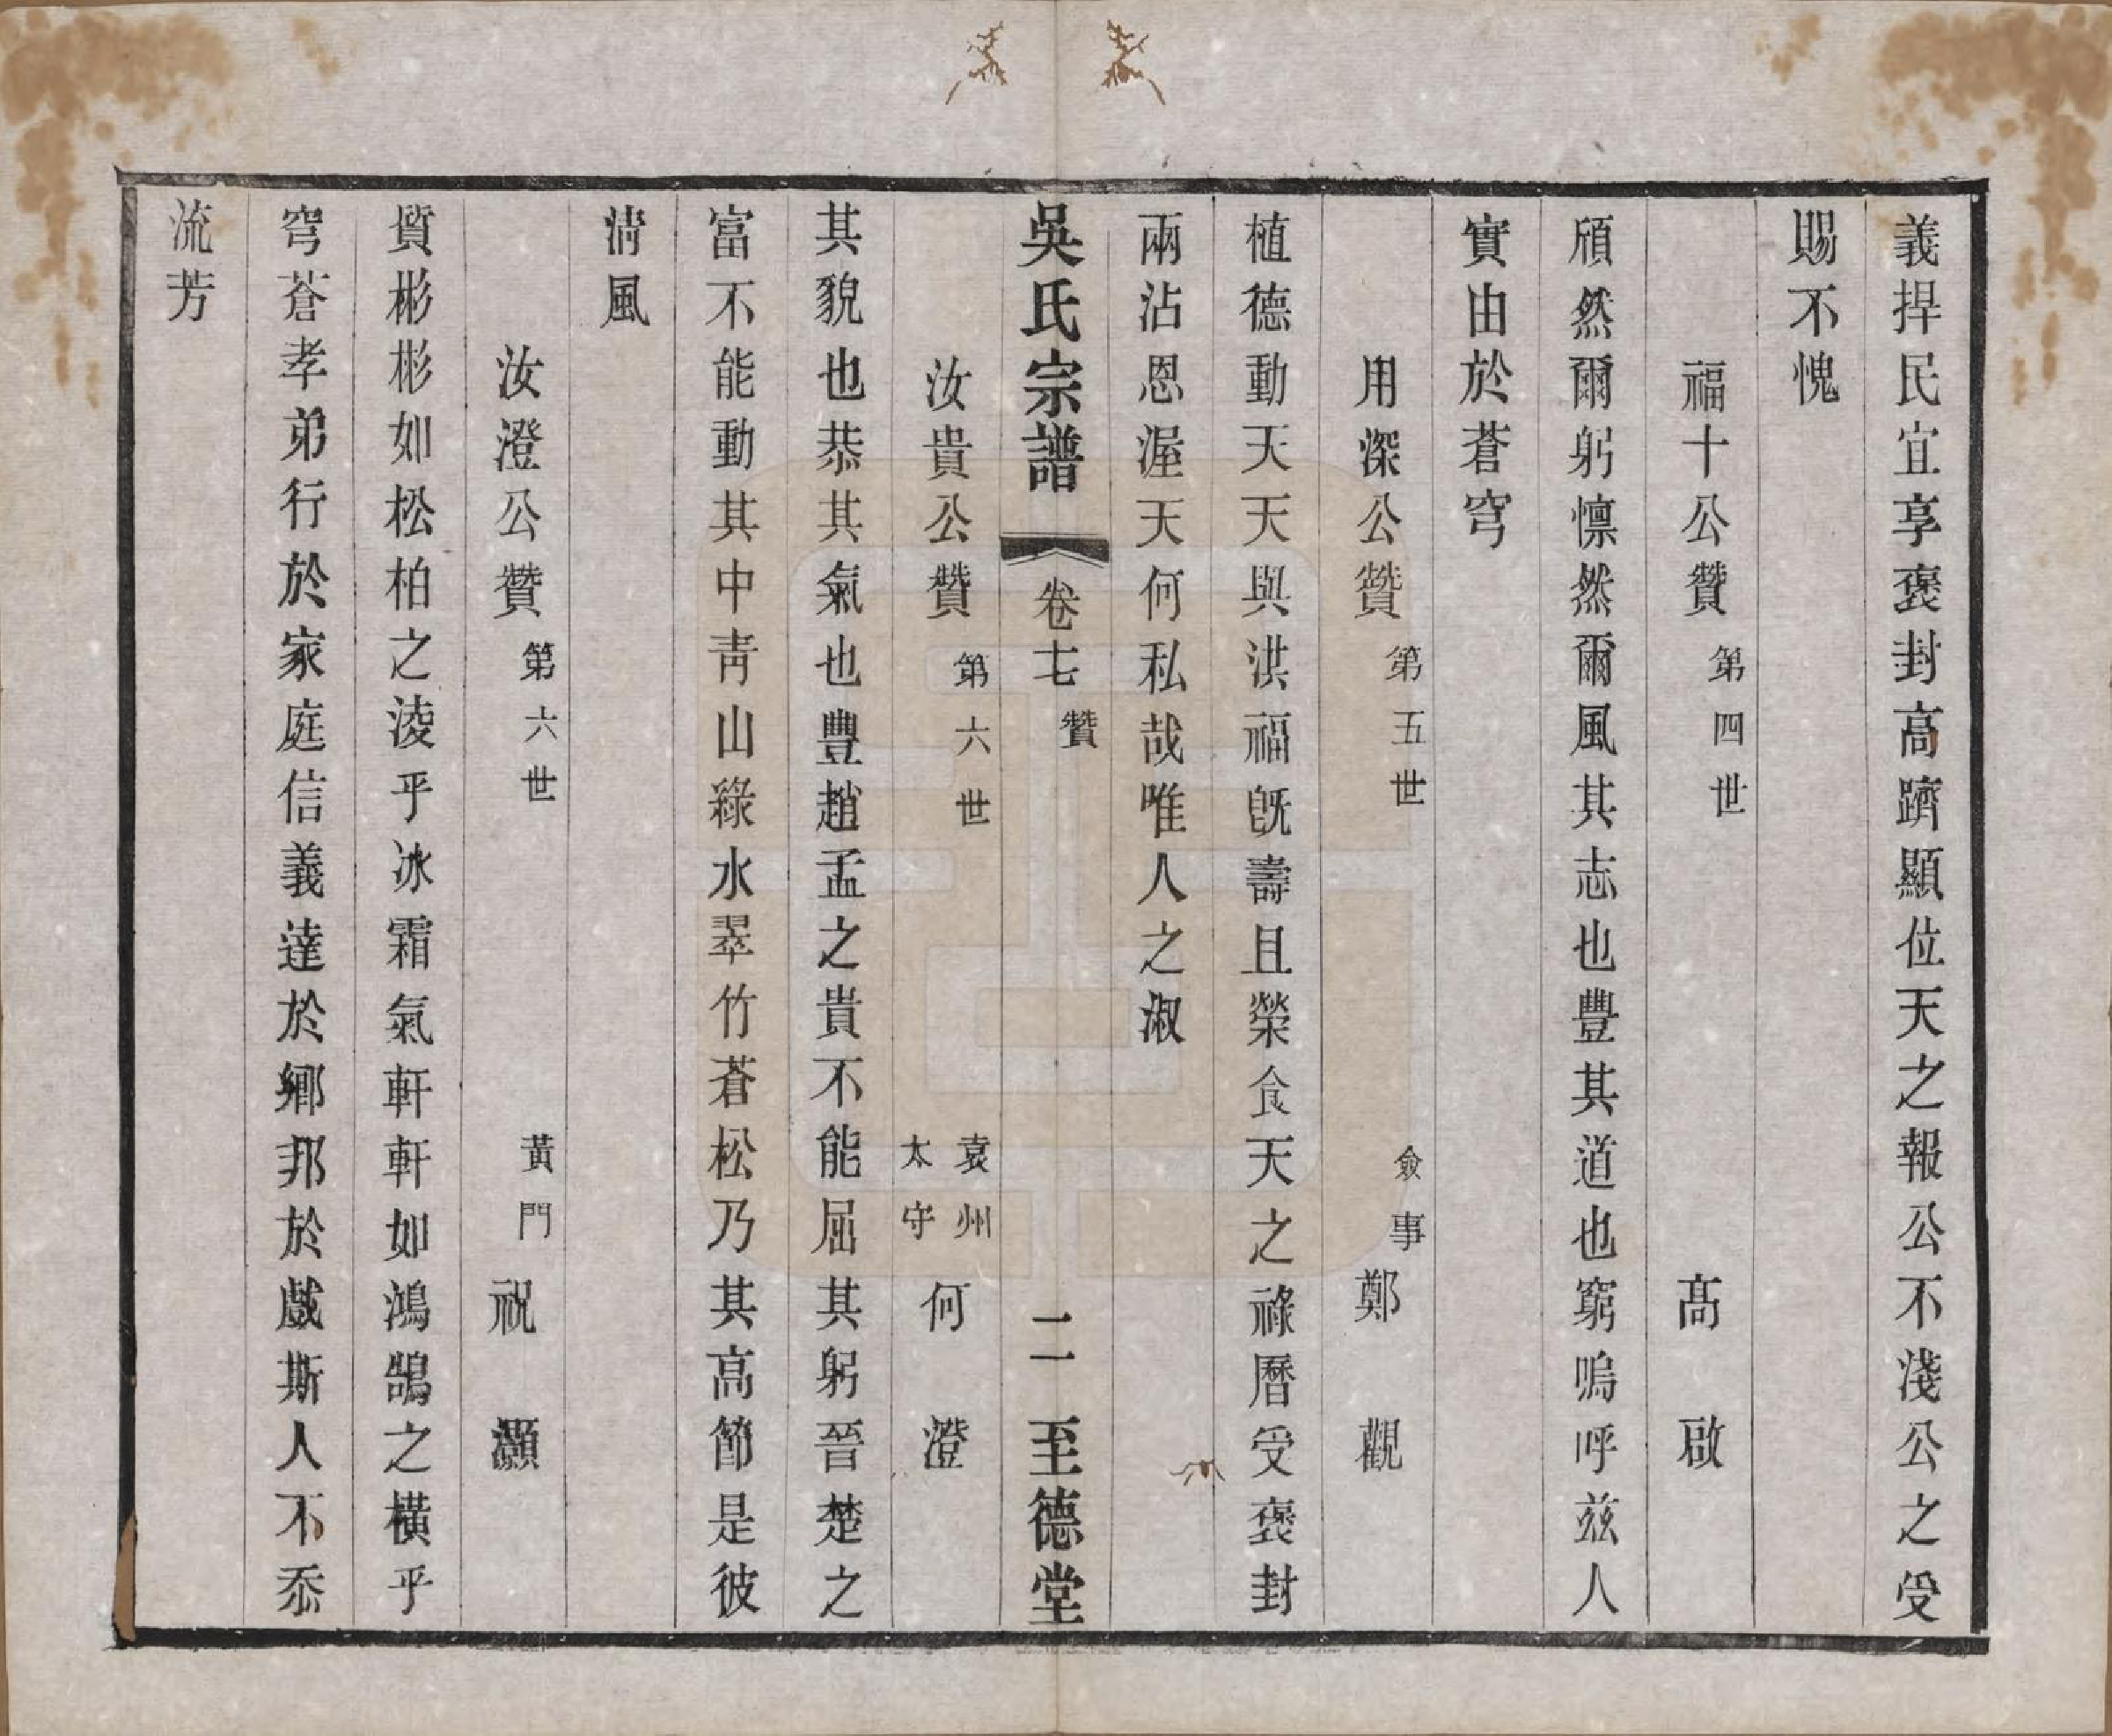 義捍民宜享褒封高躋顯位天之報公不淺公之受
賜不愧
福十公贊 第四世 高 啟
頎然爾躬懍然爾風其志也豐其道也窮嗚呼兹人
實由於蒼穹
用深公贊 第五世 僉事 鄭 觀
植德動天天與洪福旣壽且榮食天之祿曆受褒封
兩沾恩渥天何私哉唯人之淑
吳氏宗譜 卷七 贊 二 至德堂
汝貴公贊 第六世 袁州太守 何 澄
其貌也恭其氣也豐趙孟之貴不能屈其躬晉楚之
富不能動其中青山綠水翠竹蒼松乃其高節是彼
淸風
汝澄公贊 第六世 黃門 祝 灝
質彬彬如松柏之淩乎冰霜氣軒軒如鴻鵠之橫乎
穹蒼孝弟行於家庭信義達於鄉邦於戲斯人不忝
流芳